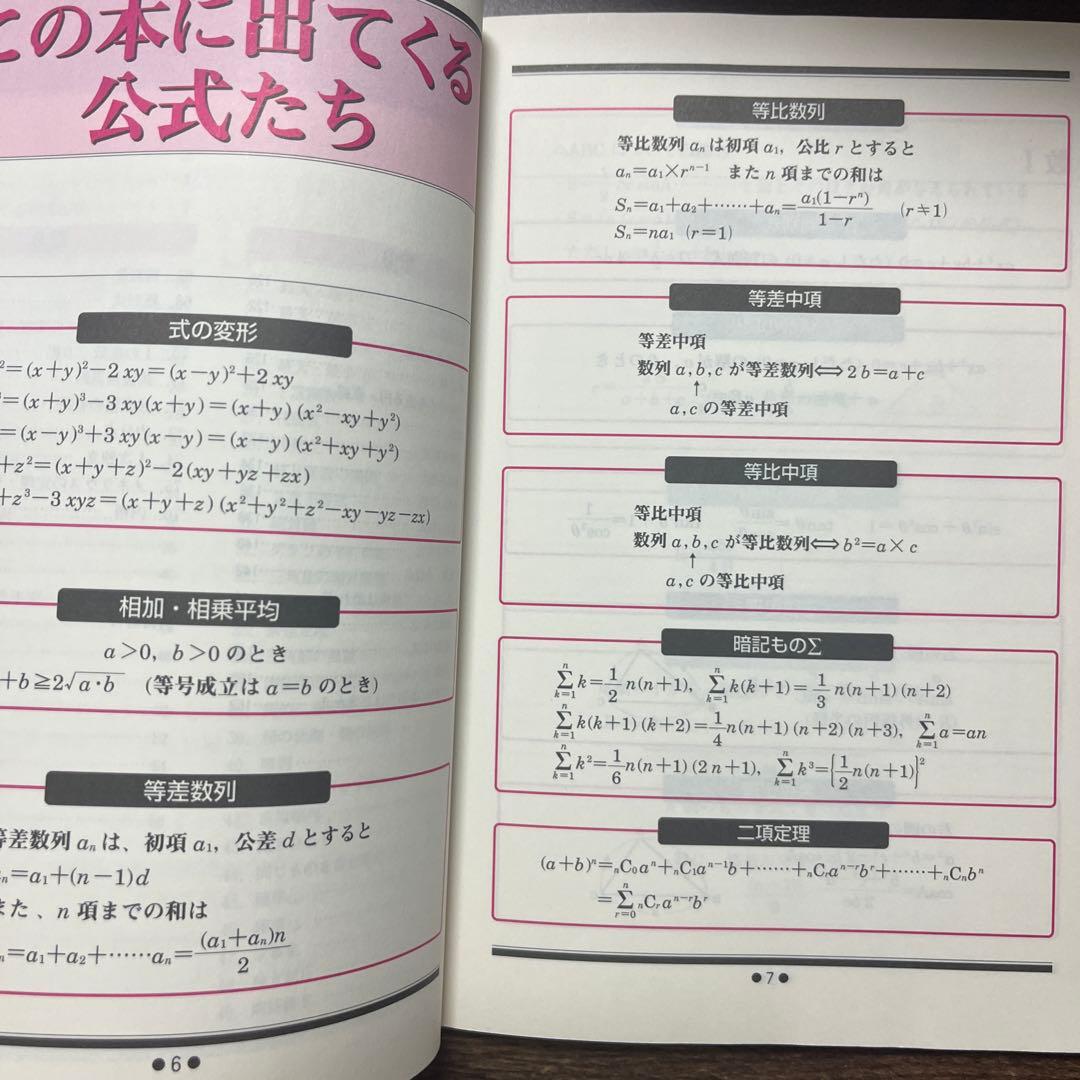 この本に出てくる
公式たち
式の変形
²=(x+y)²−2xy=(x−y)²+2xy
³=(x+y)³−3xy(x+y)=(x+y)(x²−xy+y²)
=(x−y)³+3xy(x−y)=(x−y)(x²+xy+y²)
+z²=(x+y+z)²−2(xy+yz+zx)
+z³−3xyz=(x+y+z)(x²+y²+z²−xy−yz−zx)
相加・相乗平均
a>0, b>0のとき
+b≧2√a・b (等号成立はa=bのとき)
等差数列
等差数列aₙは、初項a₁, 公差dとすると
ₙ=a₁+(n−1)d
また、n項までの和は
ₙ=a₁+a₂+……aₙ=(a₁+aₙ)n/2
●6●
等比数列
等比数列aₙは初項a₁, 公比rとすると
aₙ=a₁×rⁿ⁻¹ またn項までの和は
Sₙ=a₁+a₂+……+aₙ=a₁(1−rⁿ)/1−r (r≒1)
Sₙ=na₁ (r=1)
等差中項
等差中項
数列a,b,cが等差数列⟺2b=a+c
↑
a,cの等差中項
等比中項
等比中項
数列a,b,cが等比数列⟺b²=a×c
↑
a,cの等比中項
暗記ものΣ
Σ[k=1→n]k=1/2 n(n+1), Σ[k=1→n]k(k+1)=1/3 n(n+1)(n+2)
Σ[k=1→n]k(k+1)(k+2)=1/4 n(n+1)(n+2)(n+3), Σ[k=1→n]a=an
Σ[k=1→n]k²=1/6 n(n+1)(2n+1), Σ[k=1→n]k³={1/2 n(n+1)}²
二項定理
(a+b)ⁿ=ₙC₀aⁿ+ₙC₁aⁿ⁻¹b+……+ₙCᵣaⁿ⁻ʳbʳ+……+ₙCₙbⁿ
=Σ[r=0→n]ₙCᵣaⁿ⁻ʳbʳ
●7●